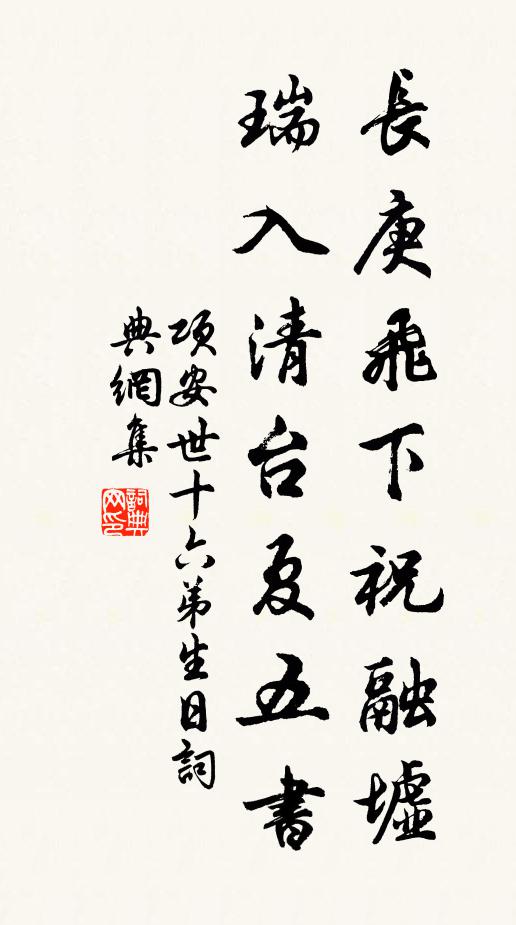 長庚飛下祝融墟
瑞入清台夏五書
項安世十六弟生日詞
典網集
詞典網印